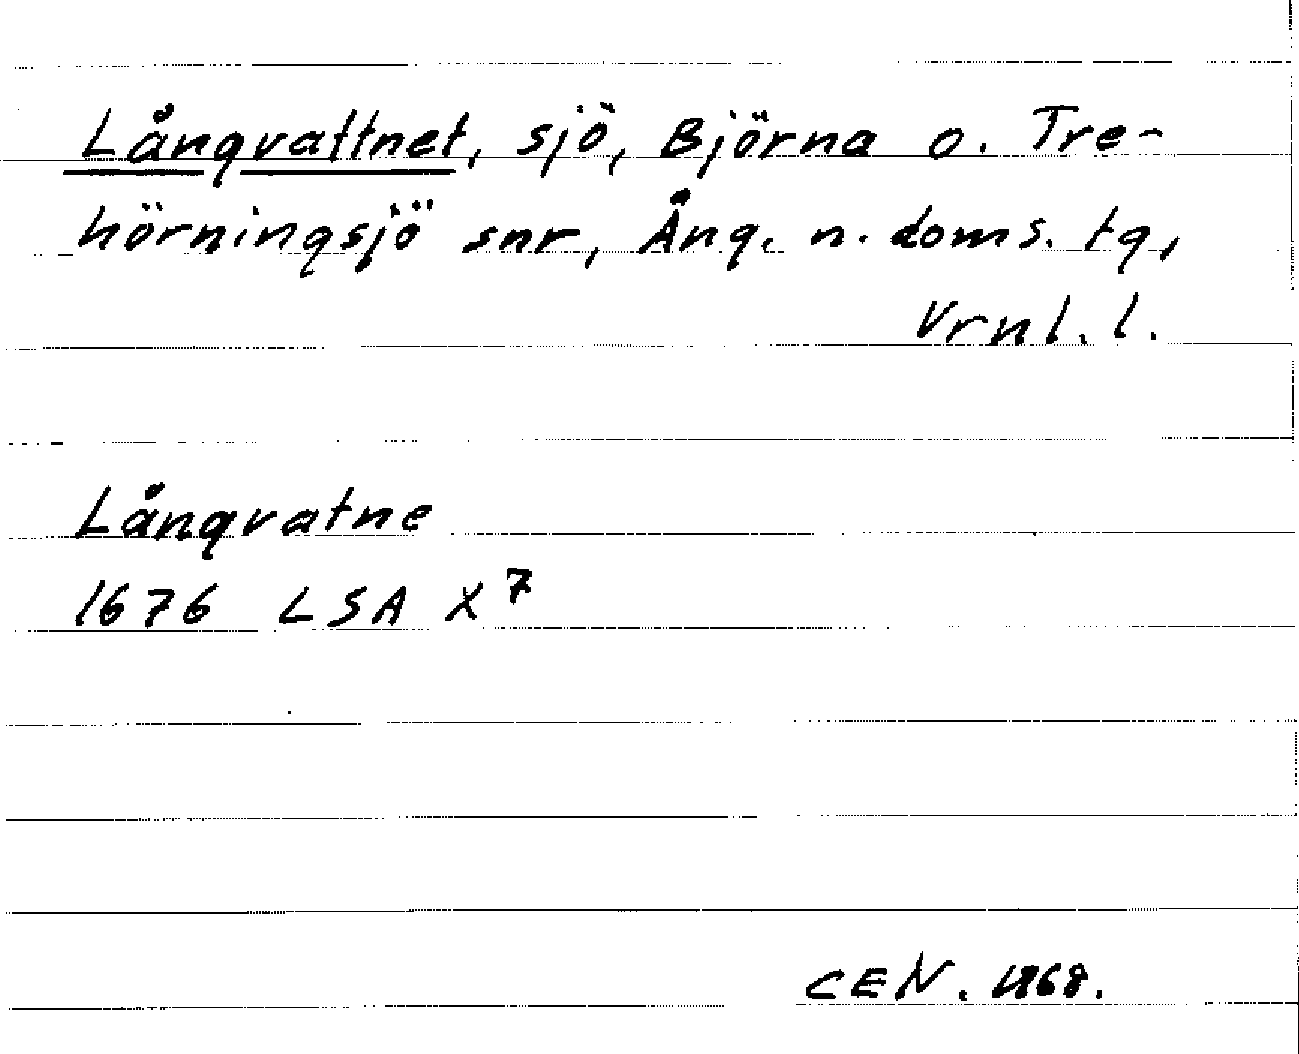 Långvattnet, sjö, Björna o. Tre-
hörningsjö snr, Ång. n. doms. tg,
Vrnl. l.
Långvatne
1676 LSA X⁷
CEN. 1968.